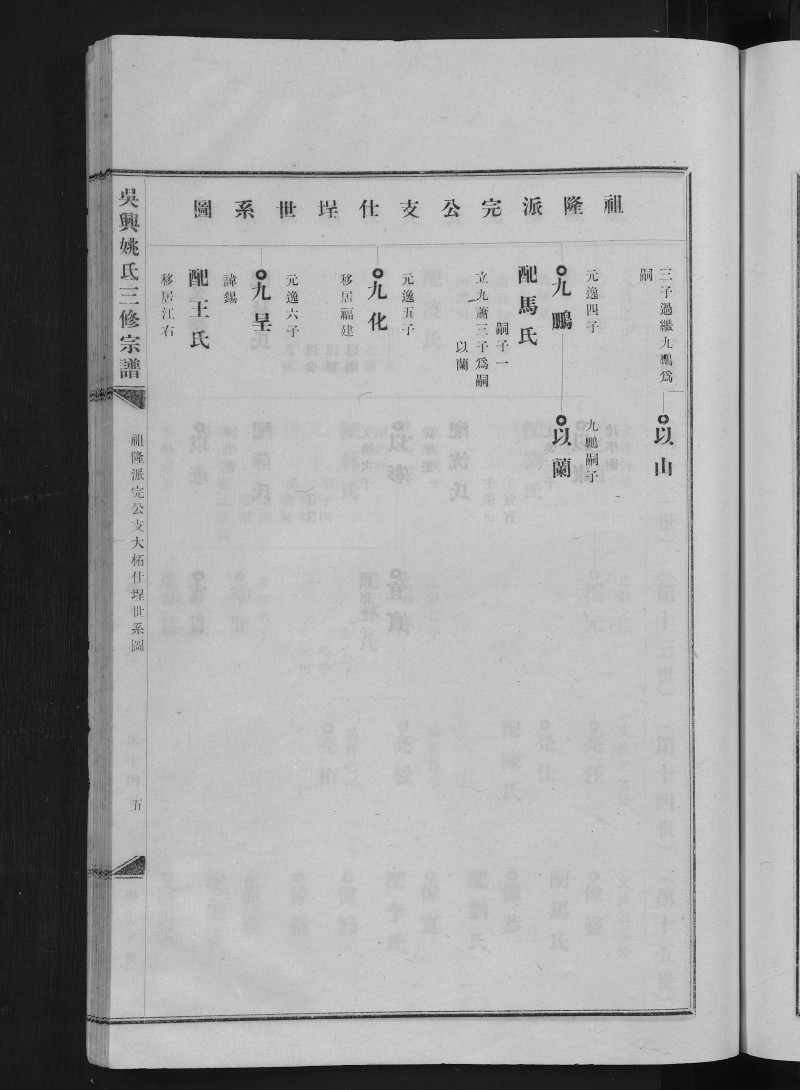 祖隆派完公支仕埕世系圖
三子過繼九鵬爲
嗣
以山
元逸四子
九鵬
配馬氏
嗣子一
以蘭
立九蕭三子爲嗣
九鵬嗣子
以蘭
元逸五子
九化
移居福建
元逸六子
九呈
諱錫
配王氏
移居江右
吳興姚氏三修宗譜
祖隆派完公支大柘仕埕世系圖
五